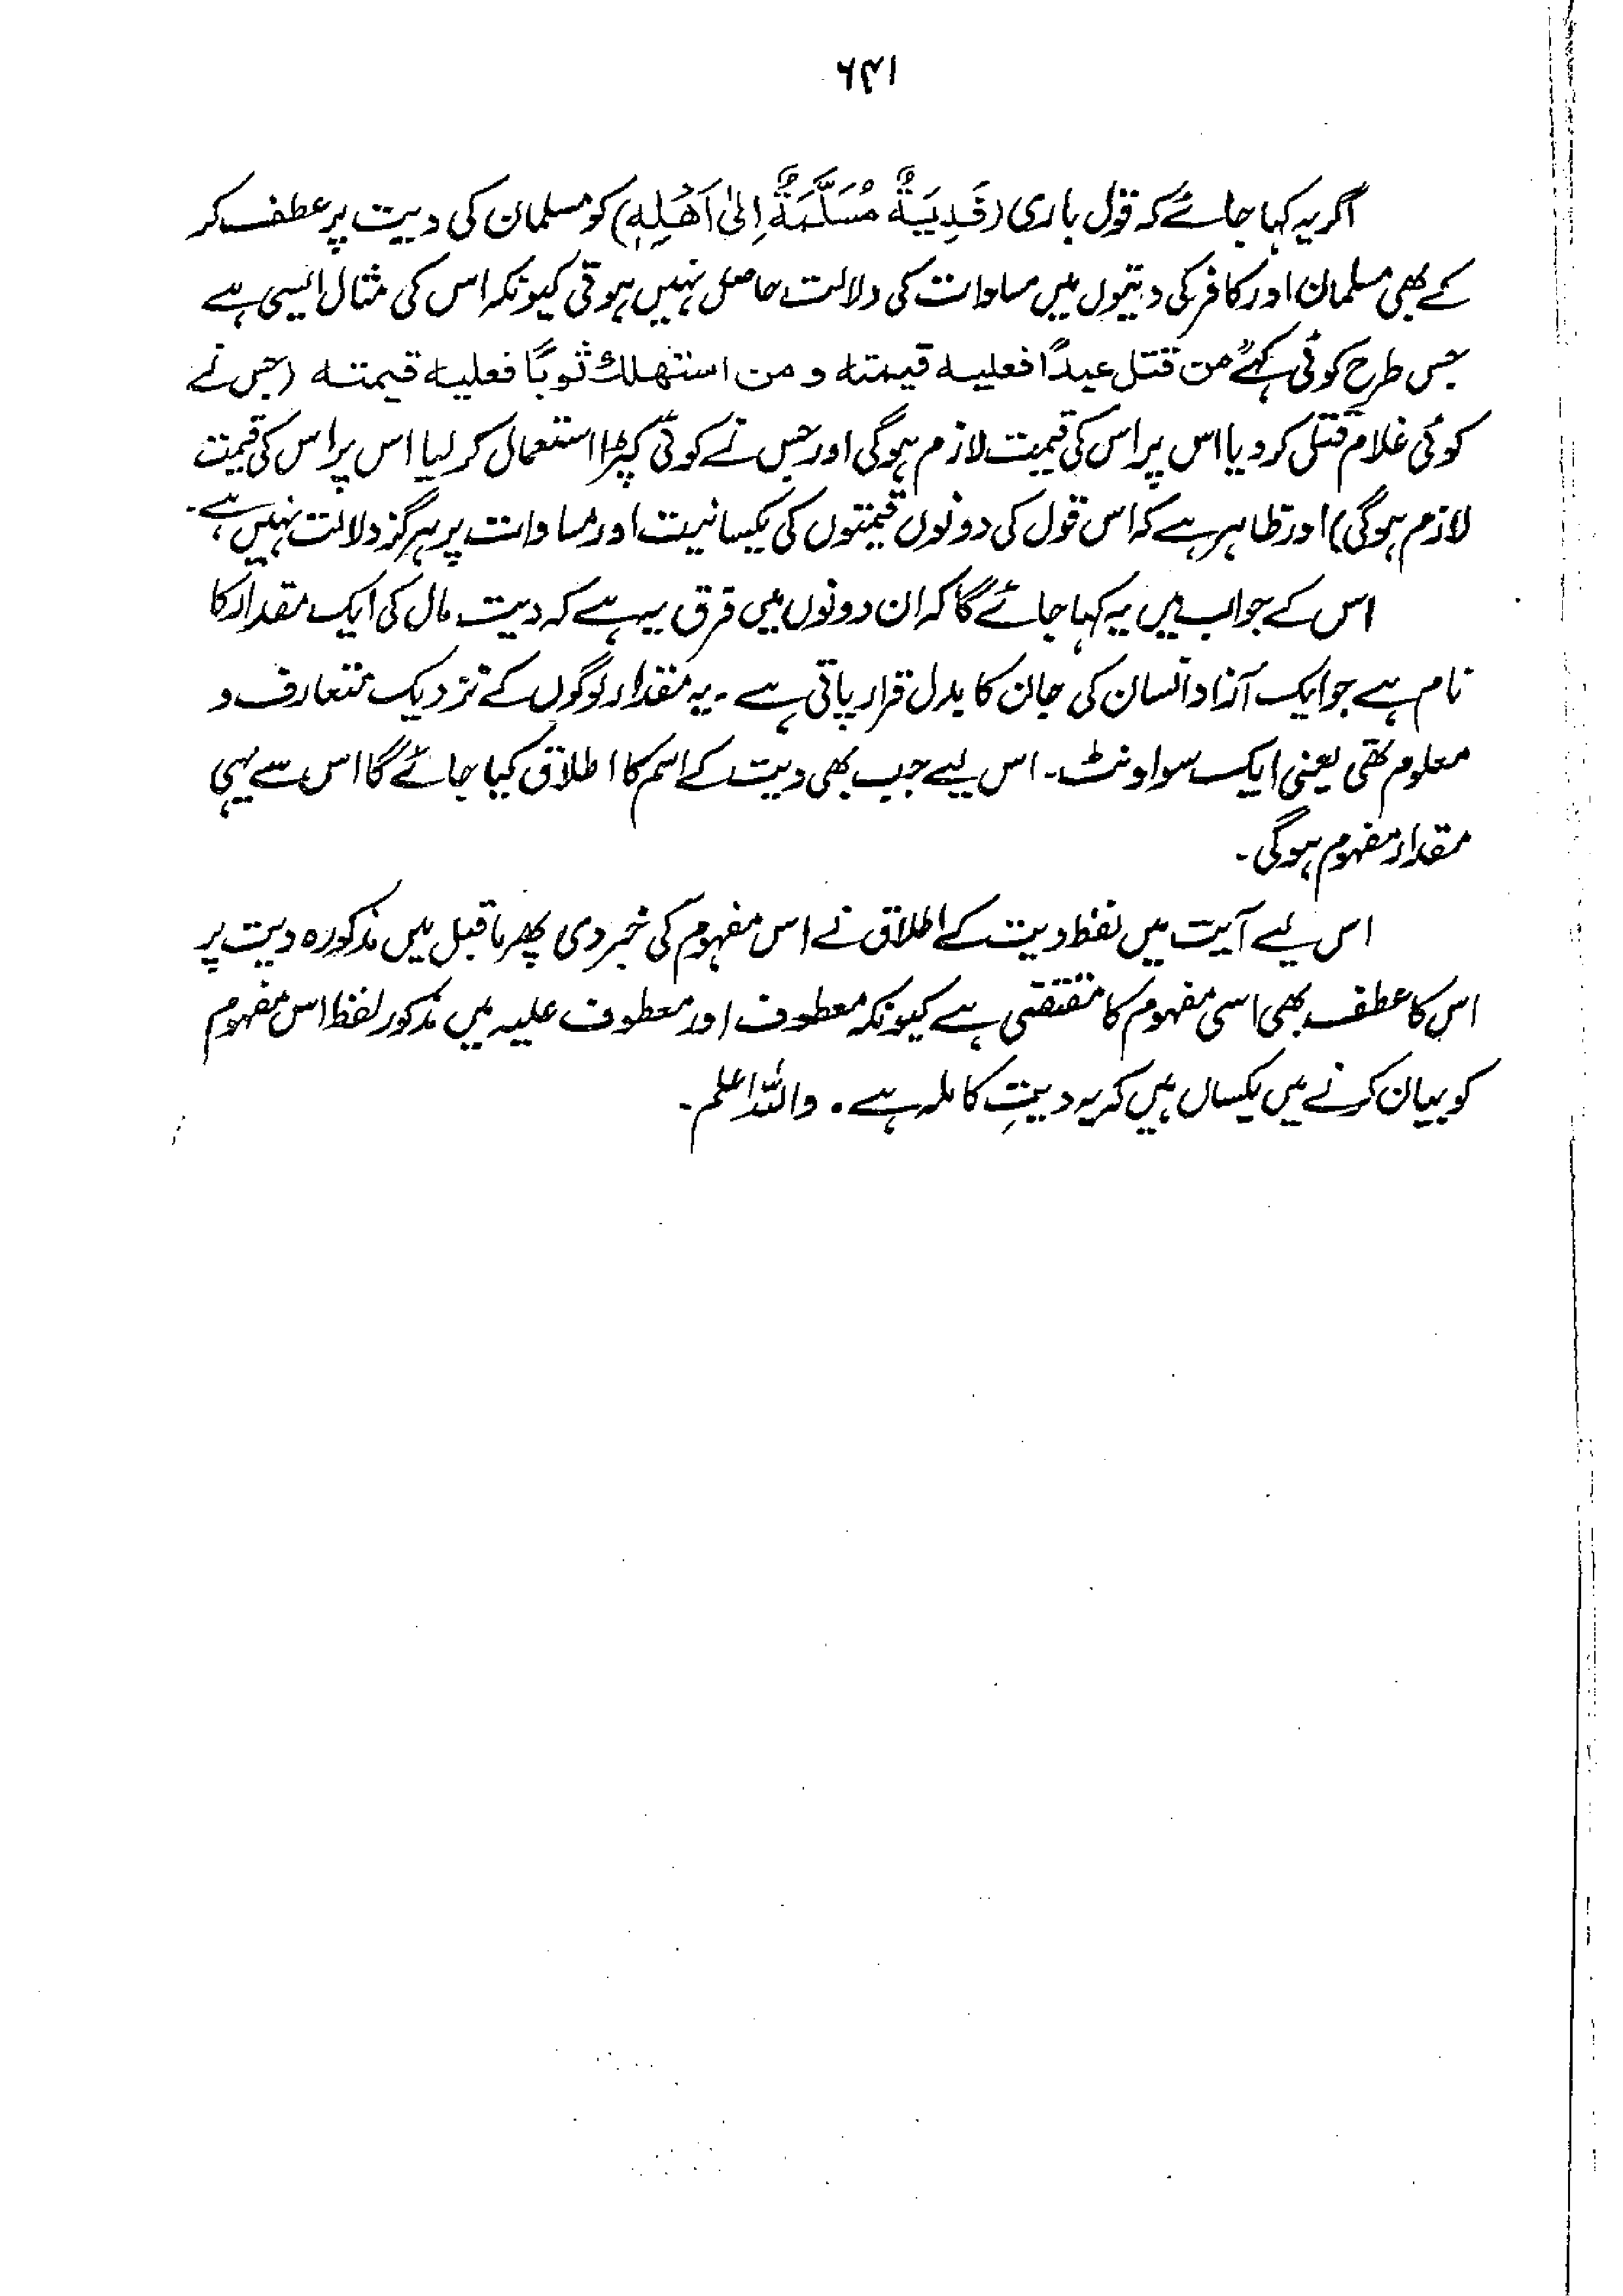 ۶۴۱
اگر یہ کہا جائے کہ قول باری (فَدِیَۃٌ مُسَلَّمَۃٌ اِلٰی اَھْلِہٖ) کو مسلمان کی دیت پر عطف کر
کے بھی مسلمان اور کافر کی دیتوں میں مساوات کی دلالت حاصل نہیں ہوتی کیونکہ اس کی مثال ایسی ہے
جس طرح کوئی کہے "من قتل عبدًا فعلیہ قیمتہ و من استھلک ثوبًا فعلیہ قیمتہ (جس نے
کوئی غلام قتل کر دیا اس پر اس کی قیمت لازم ہوگی اور جس نے کوئی کپڑا استعمال کر لیا اس پر اس کی قیمت
لازم ہوگی) اور ظاہر ہے کہ اس قول کی دونوں قیمتوں کی یکسانیت اور مساوات پر ہرگز دلالت نہیں ہے۔
اس کے جواب میں یہ کہا جائے گا کہ ان دونوں میں فرق یہ ہے کہ دیت مال کی ایک مقدار کا
نام ہے جو ایک آزاد انسان کی جان کا بدل قرار پاتی ہے۔ یہ مقدار لوگوں کے نزدیک متعارف و
معلوم تھی یعنی ایک سو اونٹ۔ اس لیے جب بھی دیت کے اسم کا اطلاق کیا جائے گا اس سے یہی
مقدار مفہوم ہوگی۔
اس لیے آیت میں لفظ دیت کے اطلاق نے اس مفہوم کی خبر دی پھر ماقبل میں مذکورہ دیت پر
اس کا عطف بھی اسی مفہوم کا مقتضی ہے کیونکہ معطوف اور معطوف علیہ میں مذکور لفظ اس مفہوم
کو بیان کرنے میں یکساں ہیں کہ یہ دیتِ کاملہ ہے۔ واللہ اعلم۔